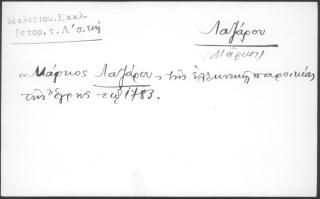 Μελιτίου.Εκκλ.
Ιστορ.τ.Λ'σ.
Λαζάρου
(Μάρκος)
"Μάρκος Λαζάρου, της ελληνικής παροικίας
της Έγρης τω 1783.